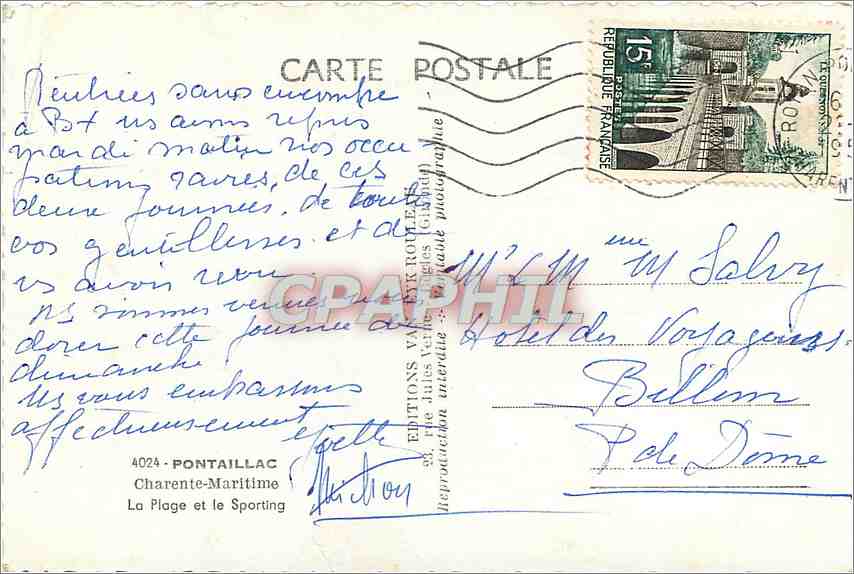 CARTE POSTALE
Rentrées sans encombre
à Bx ns avons repris
mardi matin nos occu-
pations ravies, de ces
deux journées, de toutes
vos gentillesses et de
vs avoir revu.
Ns sommes venues nous
dorer cette journée de
dimanche.
Ns vous embrassons
affectueusement
Yvette
4024 - PONTAILLAC
Charente-Maritime
La Plage et le Sporting
EDITIONS VAN EYK-ROULEAU
23, rue Jules Verne - Bègles (Gironde)
Reproduction interdite -:- Véritable photographie
15F
POSTES
REPUBLIQUE FRANÇAISE
LE QUESNOY
ROYAN
Mr & Mme M Salvy
Hotel des Voyageurs
Billom
P de Dôme
CPAPHIL